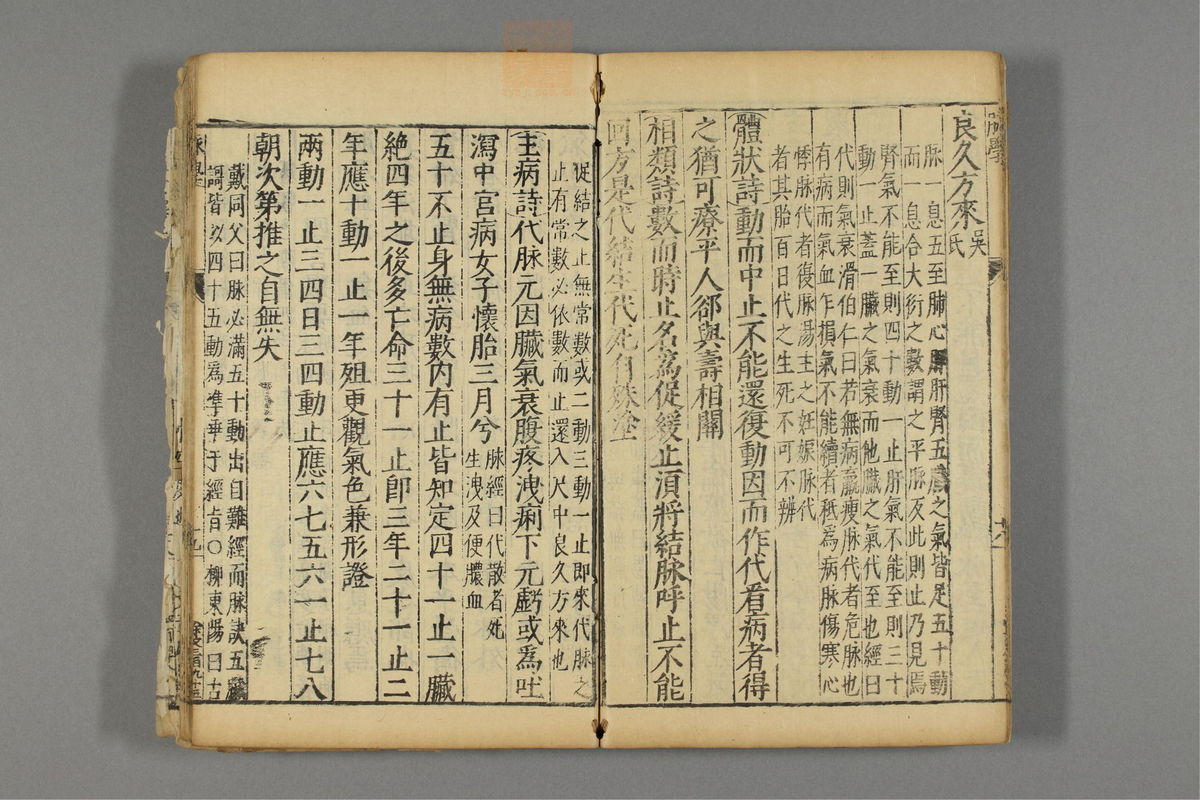 良久方來吳氏
脉一息五至肺心脾肝腎五臟之氣皆足五十動
而一息合大衍之數謂之平脉反此則止乃見焉
腎氣不能至則四十動一止肝氣不能至則三十
動一止蓋一臟之氣衰而他臟之氣代至也經曰
代則氣衰滑伯仁曰若無病羸瘦脉代者危脉也
有病而氣血乍損氣不能續者秪爲病脉傷寒心
悸脉代者復脉湯主之妊娠脉代
者其胎百日代之生死不可不辨
體狀詩動而中止不能還復動因而作代看病者得
之猶可療平人卻與壽相關
相類詩數而時止名爲促緩止須將結脉呼止不能
回方是代結生代死自殊塗
促結之止無常數或二動三動一止即來代脉之
止有常數必依數而止還入尺中良久方來也
主病詩代脉元因臟氣衰腹疼洩痢下元虧或爲吐
瀉中宮病女子懷胎三月兮脉經曰代散者死
生洩及便膿血
五十不止身無病數內有止皆知定四十一止一臟
絶四年之後多亡命三十一止卽三年二十一止二
年應十動一止一年殂更觀氣色兼形證
兩動一止三四日三四動止應六七五六一止七八
朝次第推之自無失
戴同父曰脉必滿五十動出自難經而脉訣五臟
謌皆以四十五動爲準乖于經旨○柳東陽曰古